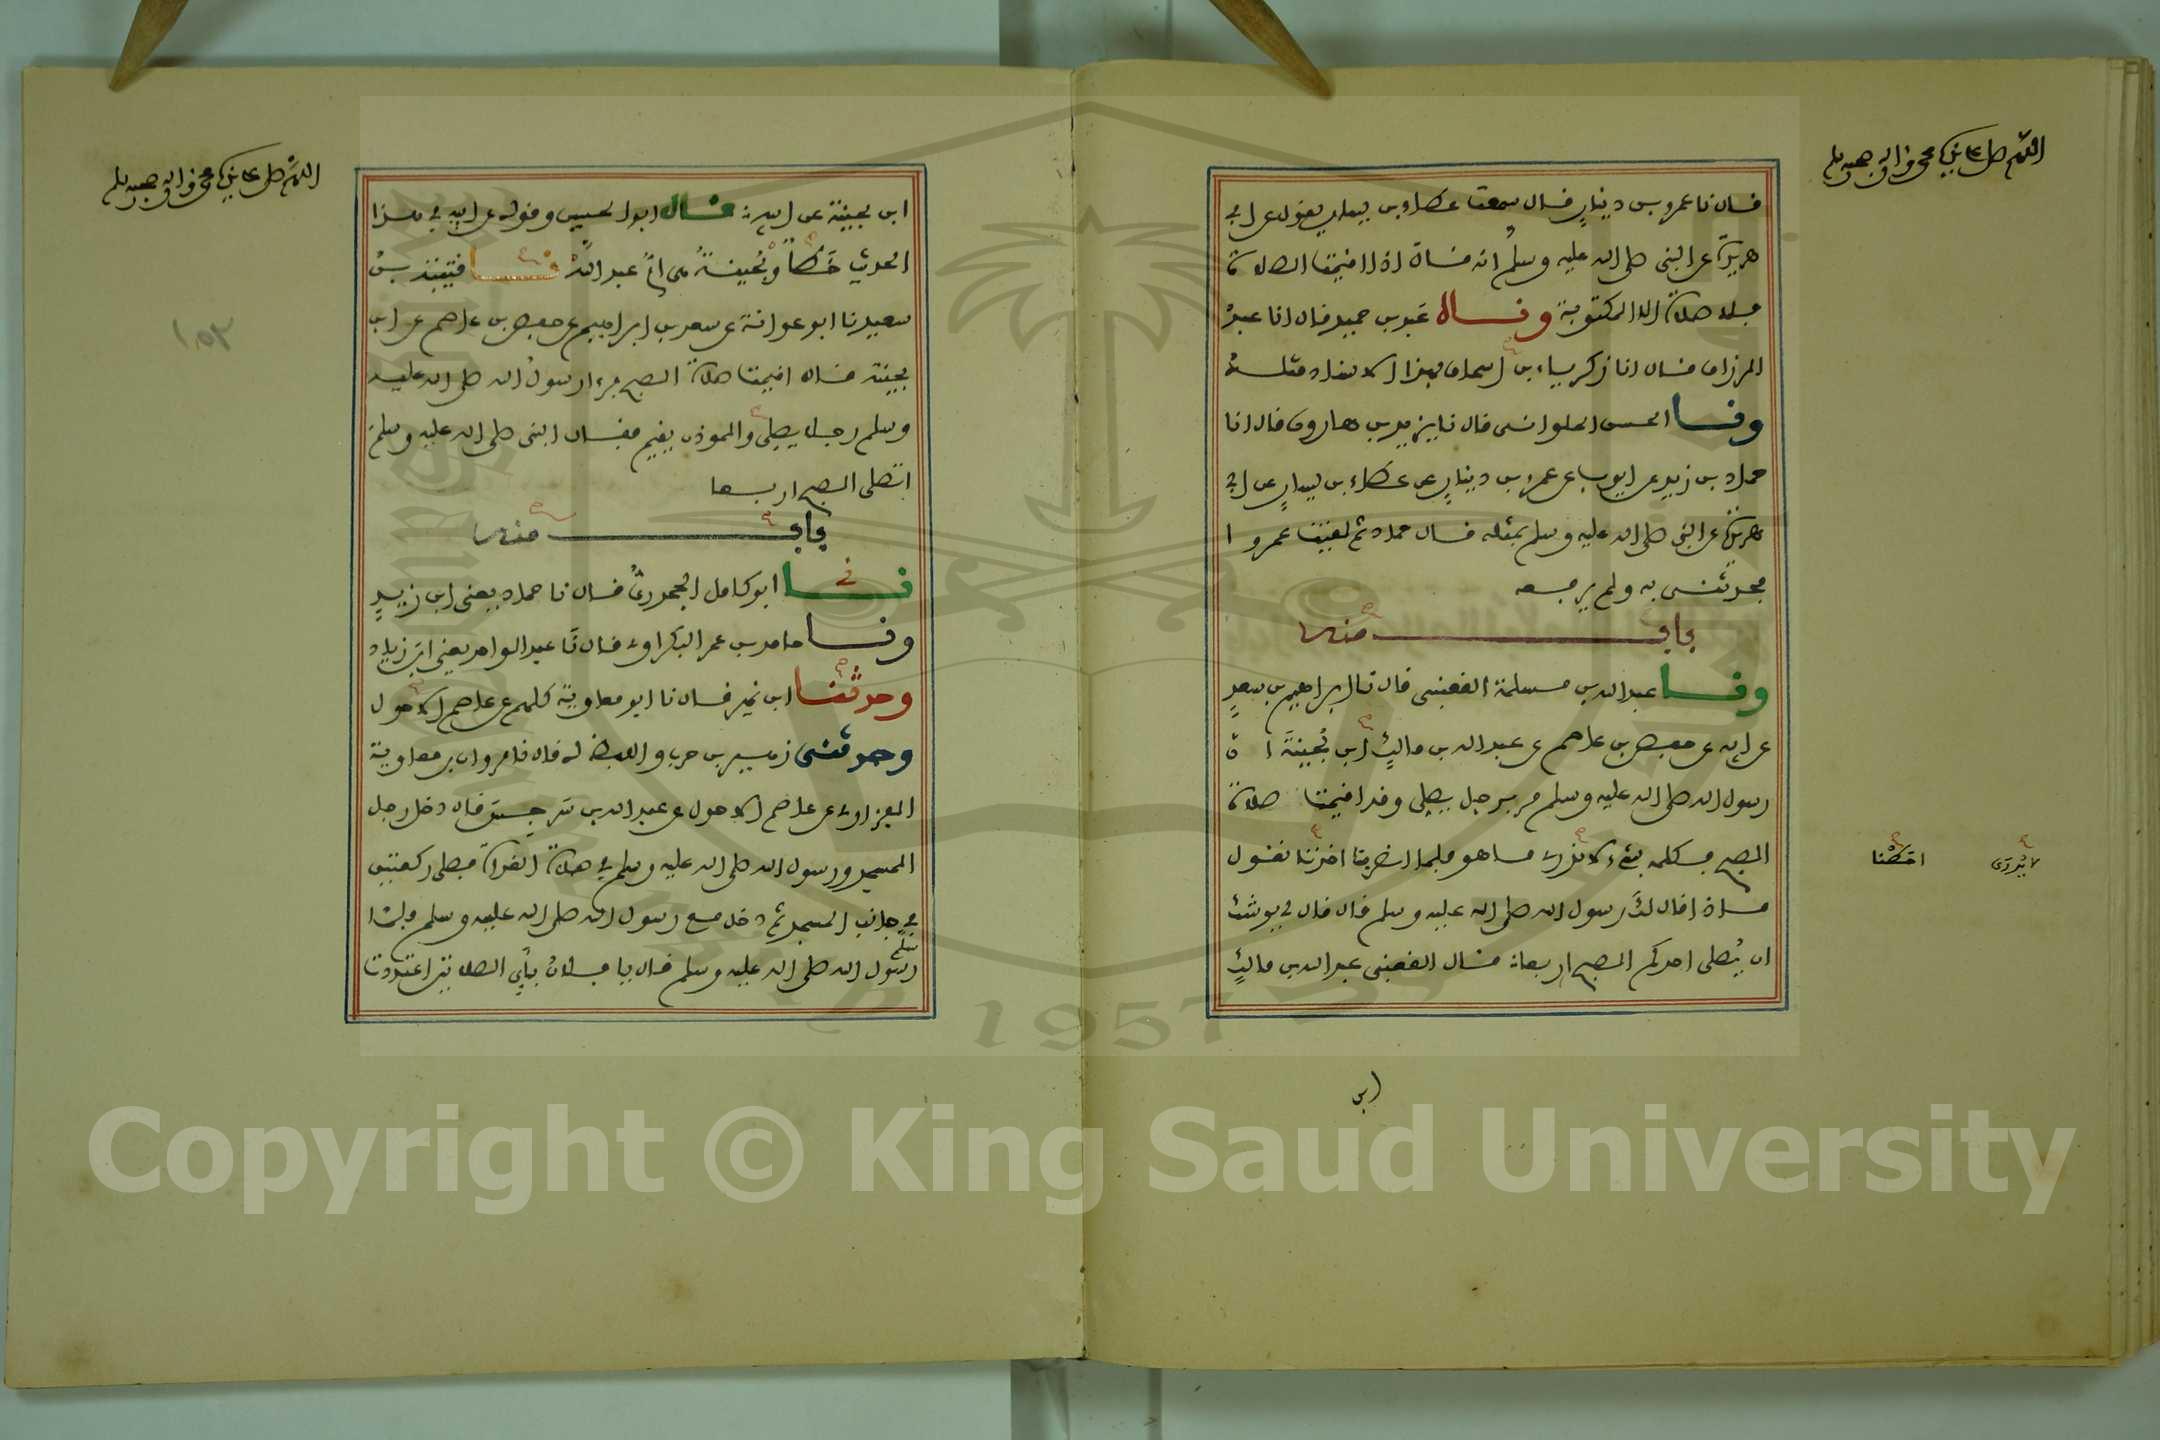 اللهم صل على سيدنا محمد وءاله وصحبه وسلم
قال نا عمرو بن دينار قال سمعت عطاء بن يسار يقول عن ابي
هريرة عن النبي صلى الله عليه وسلم انه قال اذا اقيمت الصلاة
فلا صلاة الا المكتوبة وقال عبد بن حميد قال انا عبد
الرزاق قال انا زكرياء بن اسحاق بهذا الاسناد مثله
ونا الحسن الحلواني قال نا يزيد بن هارون قال انا
حماد بن زيد عن ايوب عن عمرو بن دينار عن عطاء بن يسار عن ابي
هريرة عن النبي صلى الله عليه وسلم بمثله قال حماد ثم لقيت عمروا
فحدثني به ولم يرفعه
باب منه
ونا عبد الله بن مسلمة القعنبي قال نا ابراهيم بن سعد
عن ابيه عن حفص بن عاصم عن عبد الله بن مالك ابن بحينة ان
رسول الله صلى الله عليه وسلم مر برجل يصلي وقد اقيمت صلاة
الصبح فكلمه بشيء لا ندري ما هو فلما انصرفنا احطنا نقول
ماذا قال لك رسول الله صلى الله عليه وسلم قال قال لي يوشك
ان يصلي احدكم الصبح اربعا قال القعنبي عبد الله بن مالك
لا يدرى
احطنا
ابن
اللهم صل على سيدنا محمد وءاله وصحبه وسلم
١٥٣
ابن بحينة عن ابيه قال ابو الحسين وقوله عن ابيه في هذا
الحديث خطأ وبحينة هي ام عبد الله نا قتيبة بن
سعيد نا ابو عوانة عن سعد بن ابراهيم عن حفص بن عاصم عن ابن
بحينة قال اقيمت صلاة الصبح فرءا رسول الله صلى الله عليه
وسلم رجلا يصلي والموذن يقيم فقال النبي صلى الله عليه وسلم
اتصلي الصبح اربعا
باب منه
نا ابو كامل الجحدري قال نا حماد يعني ابن زيد
ونا حامد بن عمر البكراوي قال نا عبد الواحد يعني ابن زياد
وحدثنا ابن نمير قال نا ابو معاوية كلهم عن عاصم الاحول
وحدثني زهير بن حرب واللفظ له قال نا مروان بن معاوية
الفزاري عن عاصم الاحول عن عبد الله بن سرجس قال دخل رجل
المسجد ورسول الله صلى الله عليه وسلم في صلاة الغداة فصلى ركعتين
في جانب المسجد ثم دخل مع رسول الله صلى الله عليه وسلم فلما
سلم
رسول الله صلى الله عليه وسلم قال يا فلان باي الصلاتين اعتددت
Copyright © King Saud University
1957